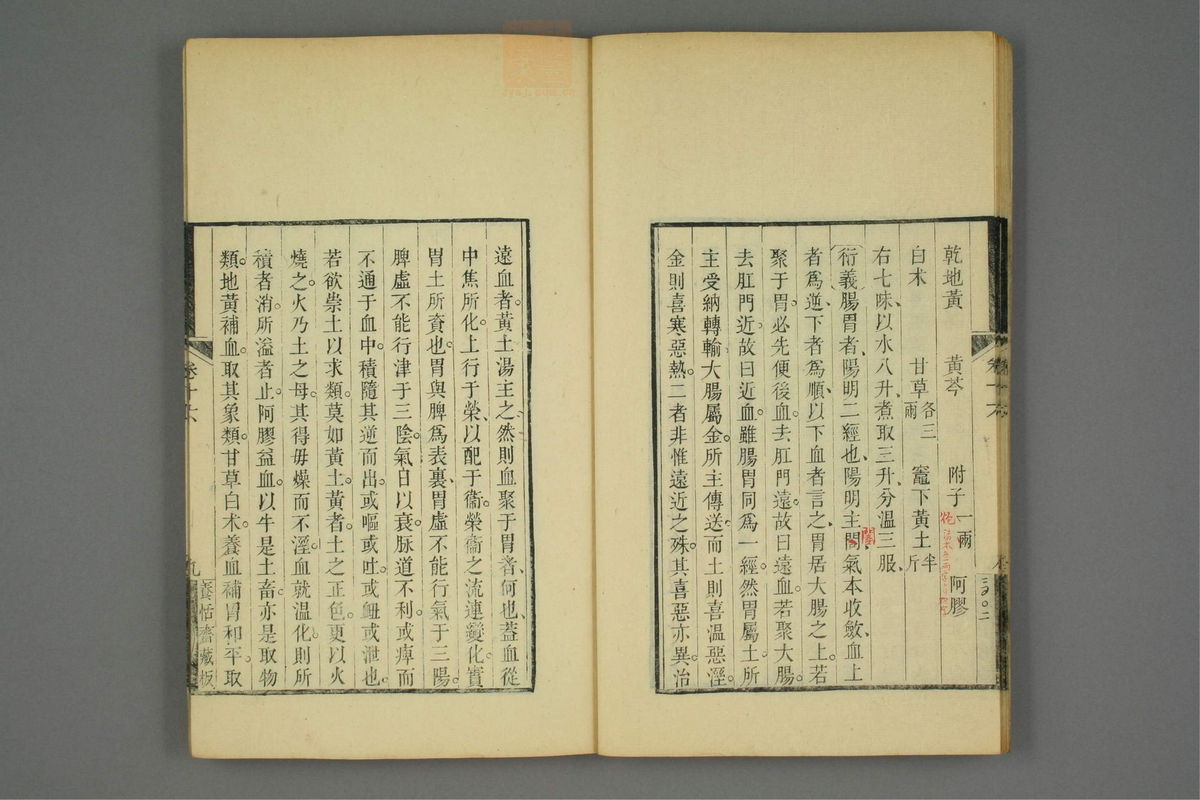 乾地黃 黃芩 附子一兩 阿膠
白术 甘草各三兩 竈下黃土半斤
右七味以水八升煮取三升分溫三服
衍義腸胃者陽明二經也陽明主闔氣本收斂血上
者爲逆下者爲順以下血者言之胃居大腸之上若
聚于胃必先便後血去肛門遠故曰遠血若聚大腸
去肛門近故曰近血雖腸胃同爲一經然胃屬土所
主受納轉輸大腸屬金所主傳送而土則喜溫惡溼
金則喜寒惡熱二者非惟遠近之殊其喜惡亦異治
遠血者黃土湯主之然則血聚于胃者何也蓋血從
中焦所化上行于榮以配于衞榮衞之流連變化實
胃土所資也胃與脾爲表裏胃虛不能行氣于三陽
脾虛不能行津于三陰氣日以衰脉道不利或痺而
不通于血中積隨其逆而出或嘔或吐或衄或泄也
若欲崇土以求類莫如黃土黃者土之正色更以火
燒之火乃土之母其得毋燥而不溼血就溫化則所
積者消所溢者止阿膠益血以牛是土畜亦是取物
類地黃補血取其象類甘草白术養血補胃和平取
卷十六
九
養恬齋藏板